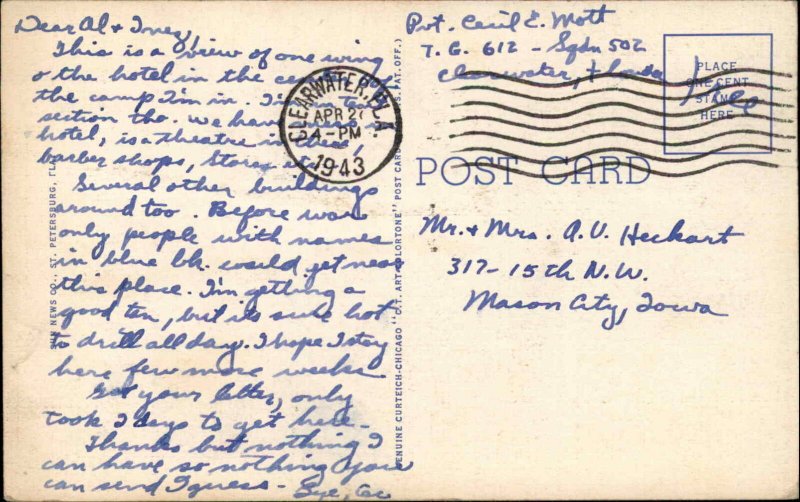 Dear Al & Inez,
This is a view of one wing
o the hotel in the center of
the camp I'm in. I'm in tent
section tho. we have mess in
hotel, is a theatre in there,
barber shops, stores etc.
Several other buildings
around too. Before war
only people with names
in blue bk. could get near
this place. I'm getting a
good tan, but its sure hot
to drill all day. I hope I stay
here few more weeks
Got your letter, only
took 3 days to get here.
Thanks but nothing I
can have so nothing you
can send I guess - Bye, Cec
SUN NEWS CO., ST. PETERSBURG, FLA.
GENUINE CURTEICH-CHICAGO "C.T. ART-COLORTONE" POST CARD (REG. U.S. PAT. OFF.)
CLEARWATER, FLA.
APR 2
4-PM
1943
Pvt. Cecil E. Mott
T.G. 612 - Sqdn 502
Clearwater, Florida
Free
PLACE
ONE CENT
STAMP
HERE
POST CARD
Mr. & Mrs. A.V. Heckart
317-15th N.W.
Mason City, Iowa